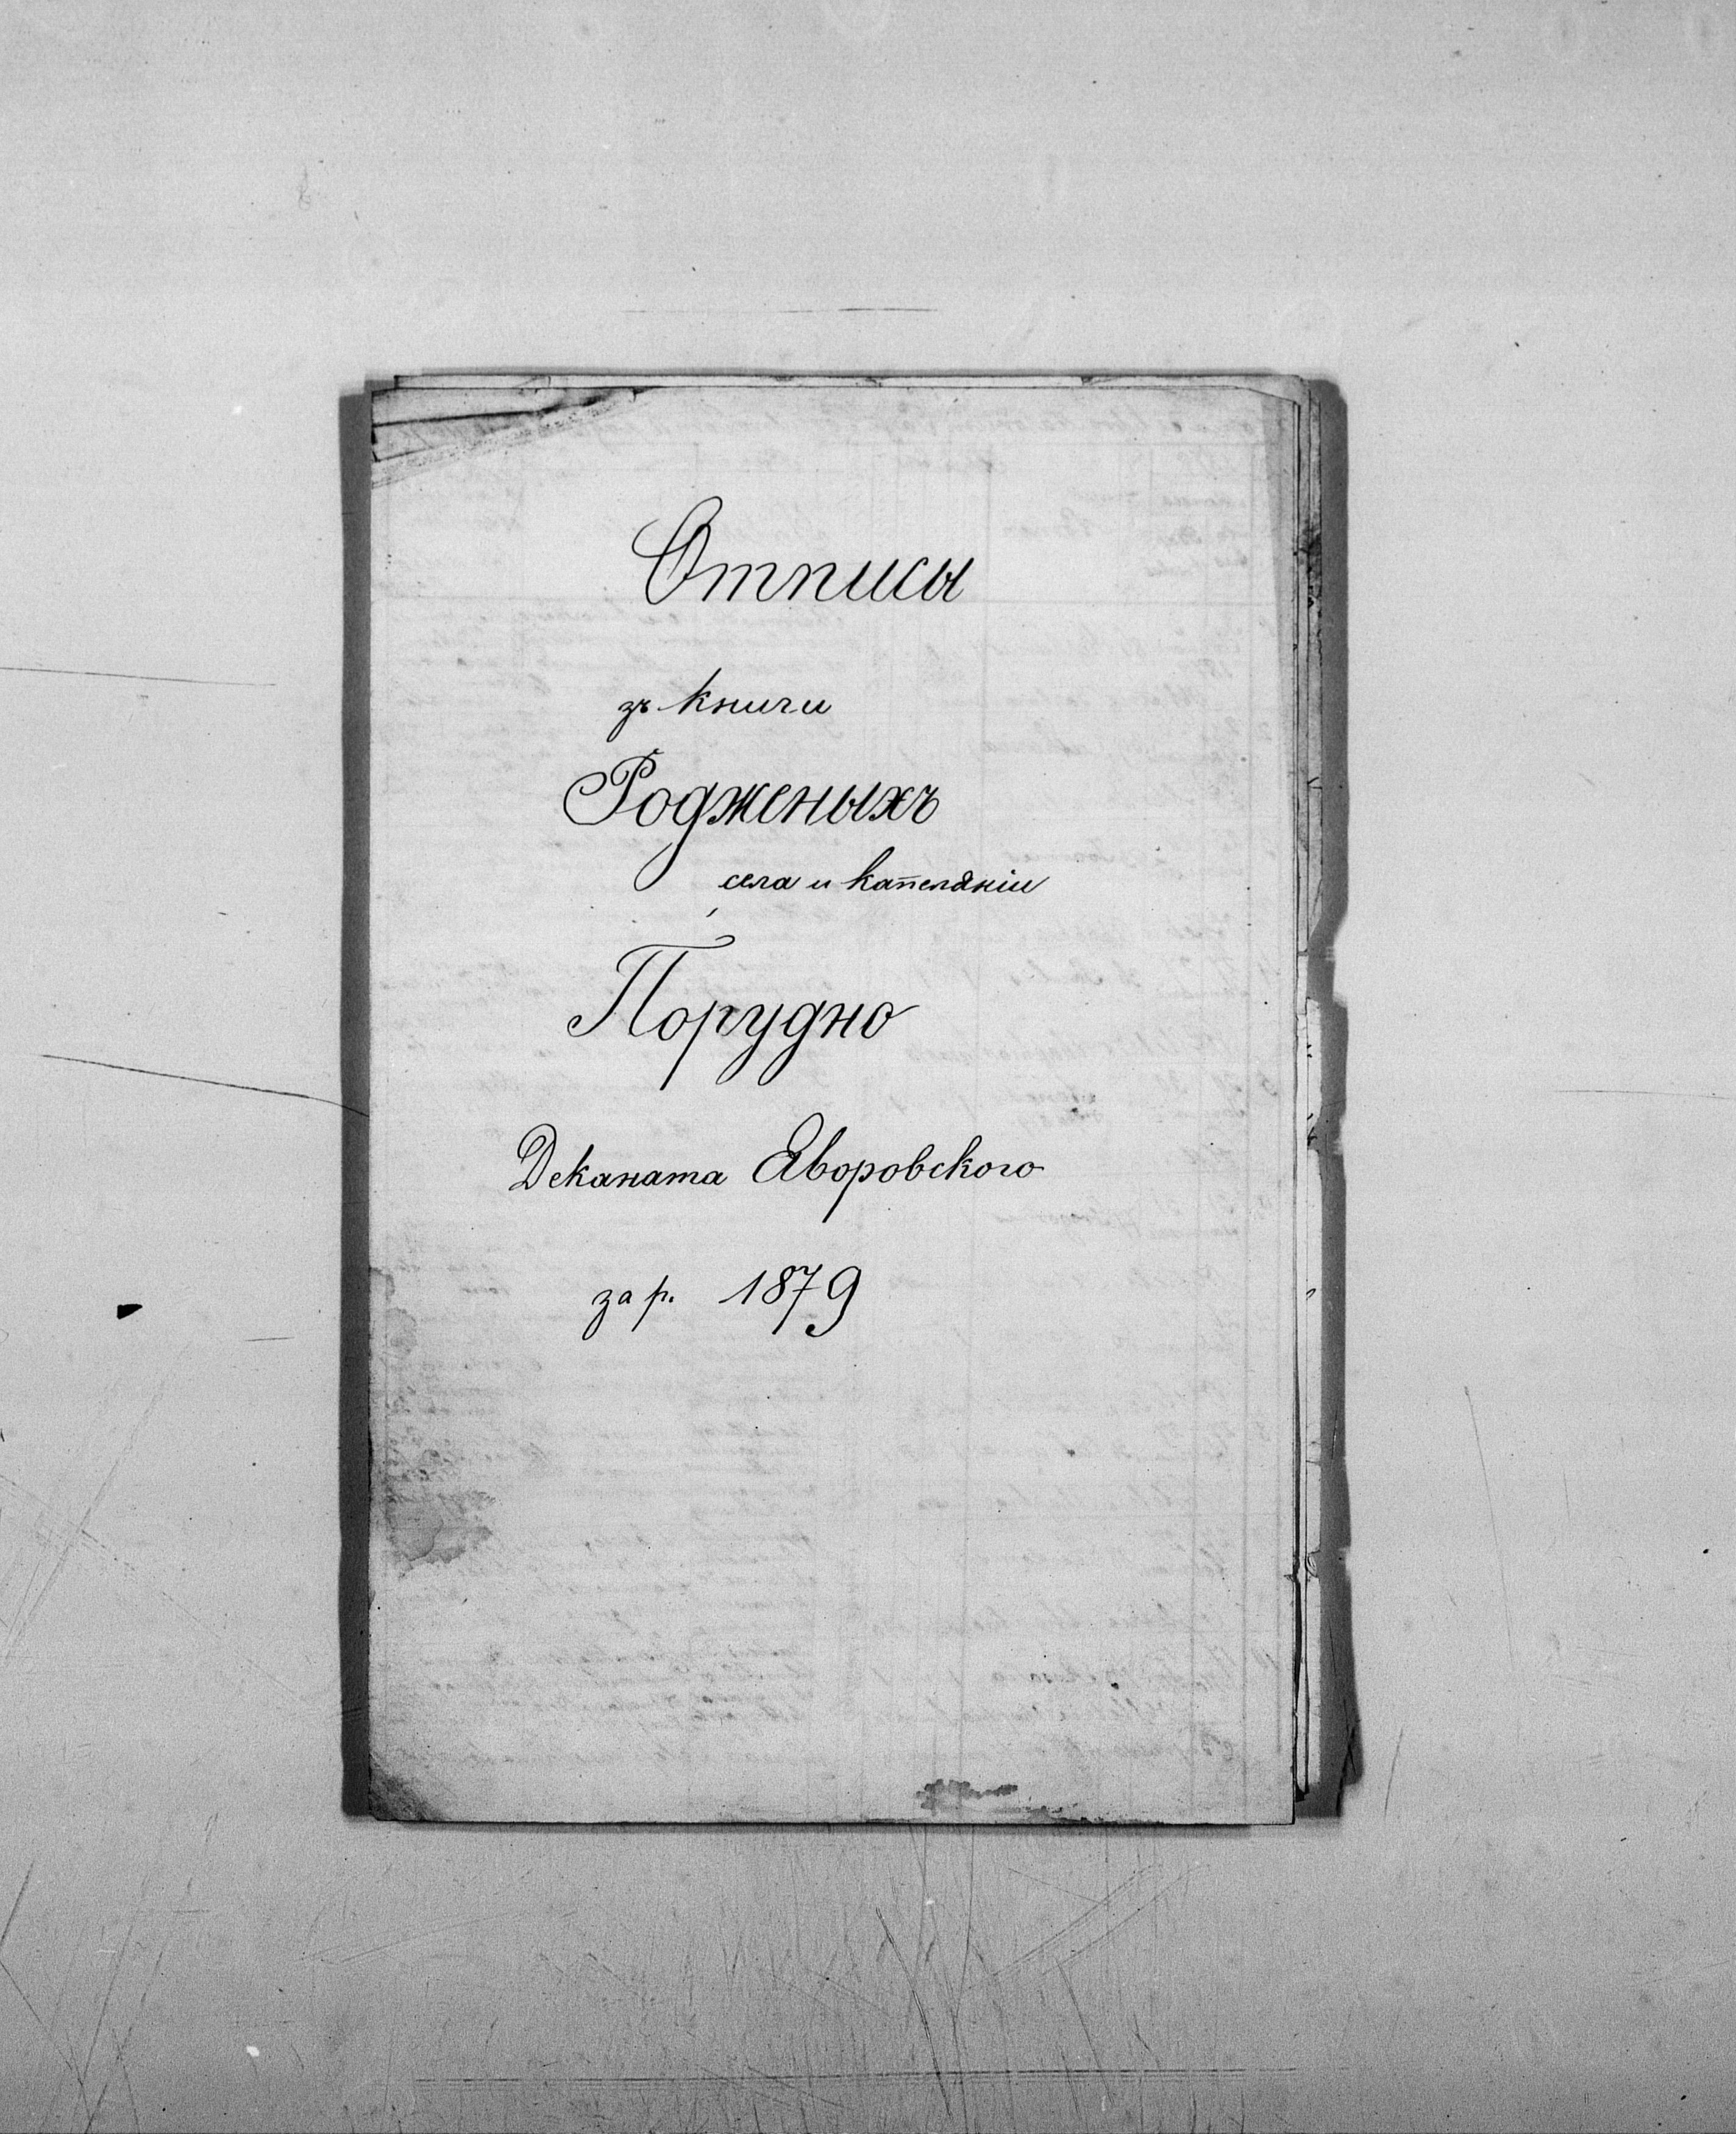 Отписы
зъ книги
Родженыхъ
села и капеляніи
Порудно
Деканата Яворовского
за р. 1879